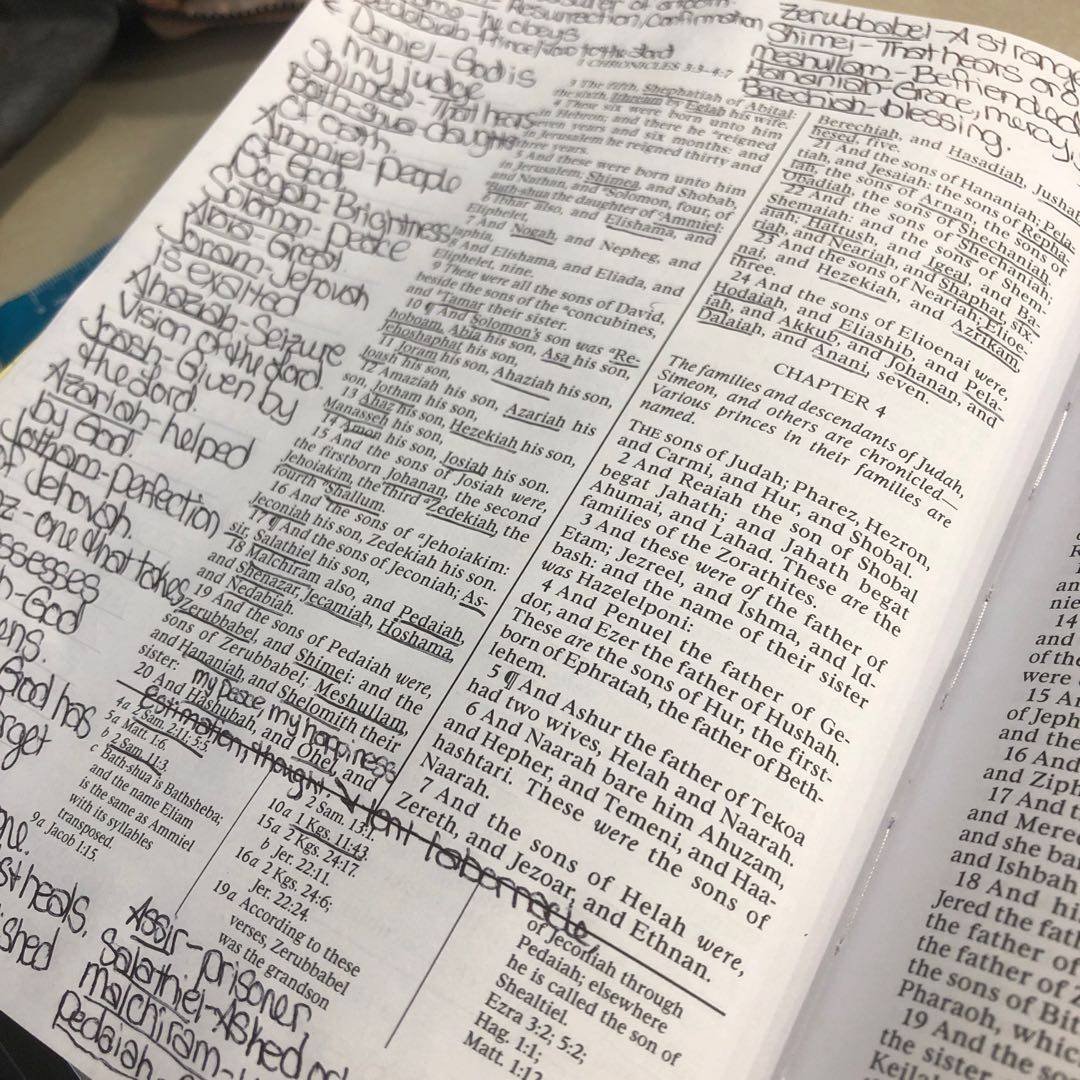 Resurrection/Confirmation
he obeys
Prince/Jord for the Lord
Daniel-God is
my judge
Shimea-That hears
Bath-shua-daughter
of oath
Ammiel-people
of God
Nogah-Brightness
Solomon-peace
Joram-Jehovah
is exalted
Ahaziah-Seizure
Vision of the Lord.
Joash-Given by
the Lord.
Azariah-helped
by God.
Jotham-perfection
of Jehovah.
one that takes
ssesses
God
God has
Assir-prisoner
Salathiel-Asked
malchiram
pedaiah
Zerubbabel-A strange
Shimei-That hears or
meshullam-Befriended
Hananiah-Grace, mercy,
Berechiah-blessing.
1 CHRONICLES 3:3–4:7
3 The fifth, Shephatiah of Abital:
the sixth, Ithream by Eglah his wife.
4 These six were born unto him
in Hebron; and there he reigned
seven years and six months: and
in Jerusalem he reigned thirty and
three years.
5 And these were born unto him
in Jerusalem; Shimea, and Shobab,
and Nathan, and Solomon, four, of
Bath-shua the daughter of Ammiel:
6 Ibhar also, and Elishama, and
Eliphelet,
7 And Nogah, and Nepheg, and
Japhia,
8 And Elishama, and Eliada, and
Eliphelet, nine.
9 These were all the sons of David,
beside the sons of the concubines,
and Tamar their sister.
10 ¶ And Solomon's son was Re-
hoboam, Abia his son, Asa his son,
Jehoshaphat his son,
11 Joram his son, Ahaziah his son,
Joash his son,
12 Amaziah his son, Azariah his
son, Jotham his son,
13 Ahaz his son, Hezekiah his son,
Manasseh his son,
14 Amon his son, Josiah his son.
15 And the sons of Josiah were,
the firstborn Johanan, the second
Jehoiakim, the third Zedekiah, the
fourth Shallum.
16 And the sons of Jehoiakim:
Jeconiah his son, Zedekiah his son.
17 ¶ And the sons of Jeconiah; As-
sir, Salathiel his son,
18 Malchiram also, and Pedaiah,
and Shenazar, Jecamiah, Hoshama,
and Nedabiah.
19 And the sons of Pedaiah were,
Zerubbabel, and Shimei: and the
sons of Zerubbabel; Meshullam,
and Hananiah, and Shelomith their
sister:
my peace, my happiness
20 And Hashubah, and Ohel, and
estimation, thought
tent tabernacle
4a 2 Sam. 2:11; 5:5.
5a Matt. 1:6.
b 2 Sam. 11:3.
c Bath-shua is Bathsheba;
and the name Eliam
is the same as Ammiel
with its syllables
transposed.
9a Jacob 1:15.
2 Sam. 13:1.
10a 1 Kgs. 11:43.
15a 2 Kgs. 24:17.
b Jer. 22:11.
16a 2 Kgs. 24:6;
Jer. 22:24.
19a According to these
verses, Zerubbabel
was the grandson
of Jeconiah through
Pedaiah; elsewhere
he is called the son of
Shealtiel.
Ezra 3:2; 5:2;
Hag. 1:1;
Matt. 1:12
Berechiah, and Hasadiah, Jushab-
hesed, five.
21 And the sons of Hananiah; Pela-
tiah, and Jesaiah: the sons of Repha-
iah, the sons of Arnan, the sons of
Obadiah, the sons of Shechaniah.
22 And the sons of Shechaniah;
Shemaiah: and the sons of Shem-
aiah; Hattush, and Igeal, and Ba-
riah, and Neariah, and Shaphat, six.
23 And the sons of Neariah; Elioe-
nai, and Hezekiah, and Azrikam,
three.
24 And the sons of Elioenai were,
Hodaiah, and Eliashib, and Pela-
iah, and Akkub, and Johanan, and
Dalaiah, and Anani, seven.
CHAPTER 4
The families and descendants of Judah,
Simeon, and others are chronicled—
Various princes in their families are
named.
THE sons of Judah; Pharez, Hezron,
and Carmi, and Hur, and Shobal.
2 And Reaiah the son of Shobal
begat Jahath; and Jahath begat
Ahumai, and Lahad. These are the
families of the Zorathites.
3 And these were of the father of
Etam; Jezreel, and Ishma, and Id-
bash: and the name of their sister
was Hazelelponi:
4 And Penuel the father of Ge-
dor, and Ezer the father of Hushah.
These are the sons of Hur, the first-
born of Ephratah, the father of Beth-
lehem.
5 ¶ And Ashur the father of Tekoa
had two wives, Helah and Naarah.
6 And Naarah bare him Ahuzam,
and Hepher, and Temeni, and Haa-
hashtari. These were the sons of
Naarah.
7 And the sons of Helah were,
Zereth, and Jezoar, and Ethnan.
14
and
of the
were
15 An
of Jeph
and the
16 And
and Ziph
17 And t
and Mere
and she ba
and Ishbah
18 And hi
Jered the fath
the father of
the father of Z
the sons of Bit
Pharaoh, which
19 And the so
the sister
Keilah